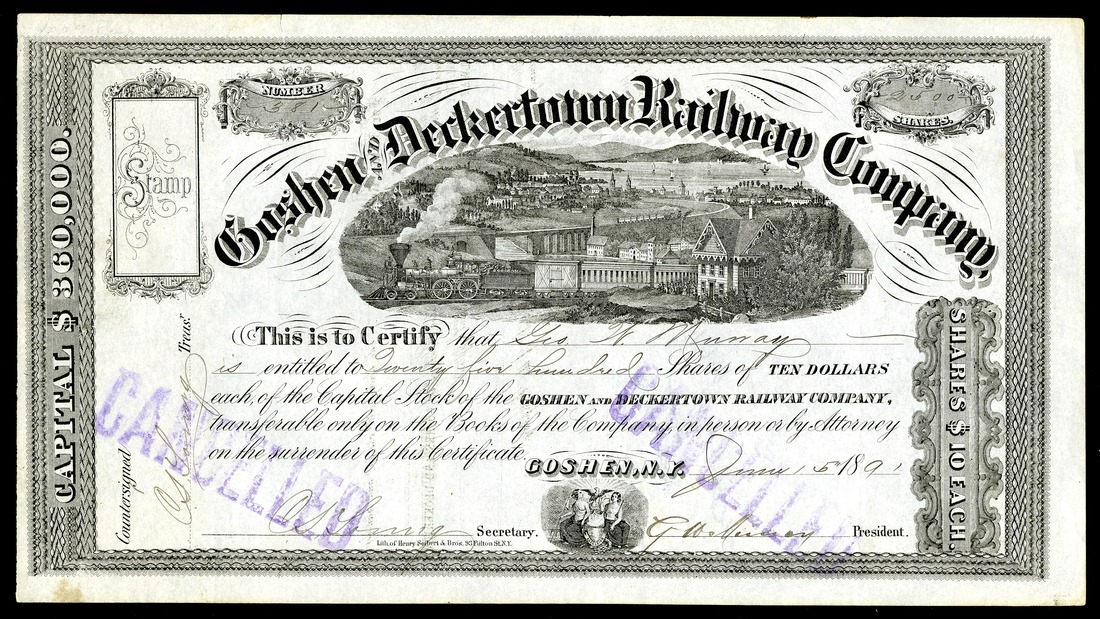 NUMBER
351
2500
SHARES.
Stamp
Goshen AND Deckertown Railway Company
CAPITAL $ 360,000.
SHARES $ 10 EACH.
This is to Certify that Geo. W. Murray
is entitled to Twenty five hundred Shares of TEN DOLLARS
each, of the Capital Stock of the GOSHEN AND DECKERTOWN RAILWAY COMPANY,
transferable only on the Books of the Company in person or by Attorney
on the surrender of this Certificate.
GOSHEN, N.Y. June 15 1891
Countersigned Treasr.
Secretary.
G W Murray President.
Lith. of Henry Seibert & Bros. 93 Fulton St. N.Y.
CANCELLED
CANCELLED